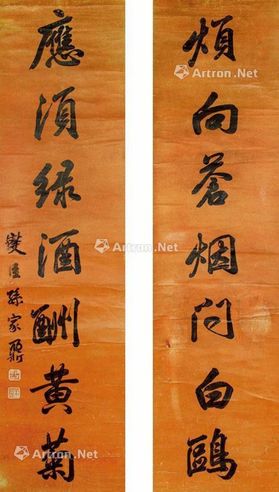 煩向蒼烟問白鷗
應須緑酒酬黃菊
燮臣孫家鼐
Artron.Net
Artron.Net
Artron.Net
Artron.Net